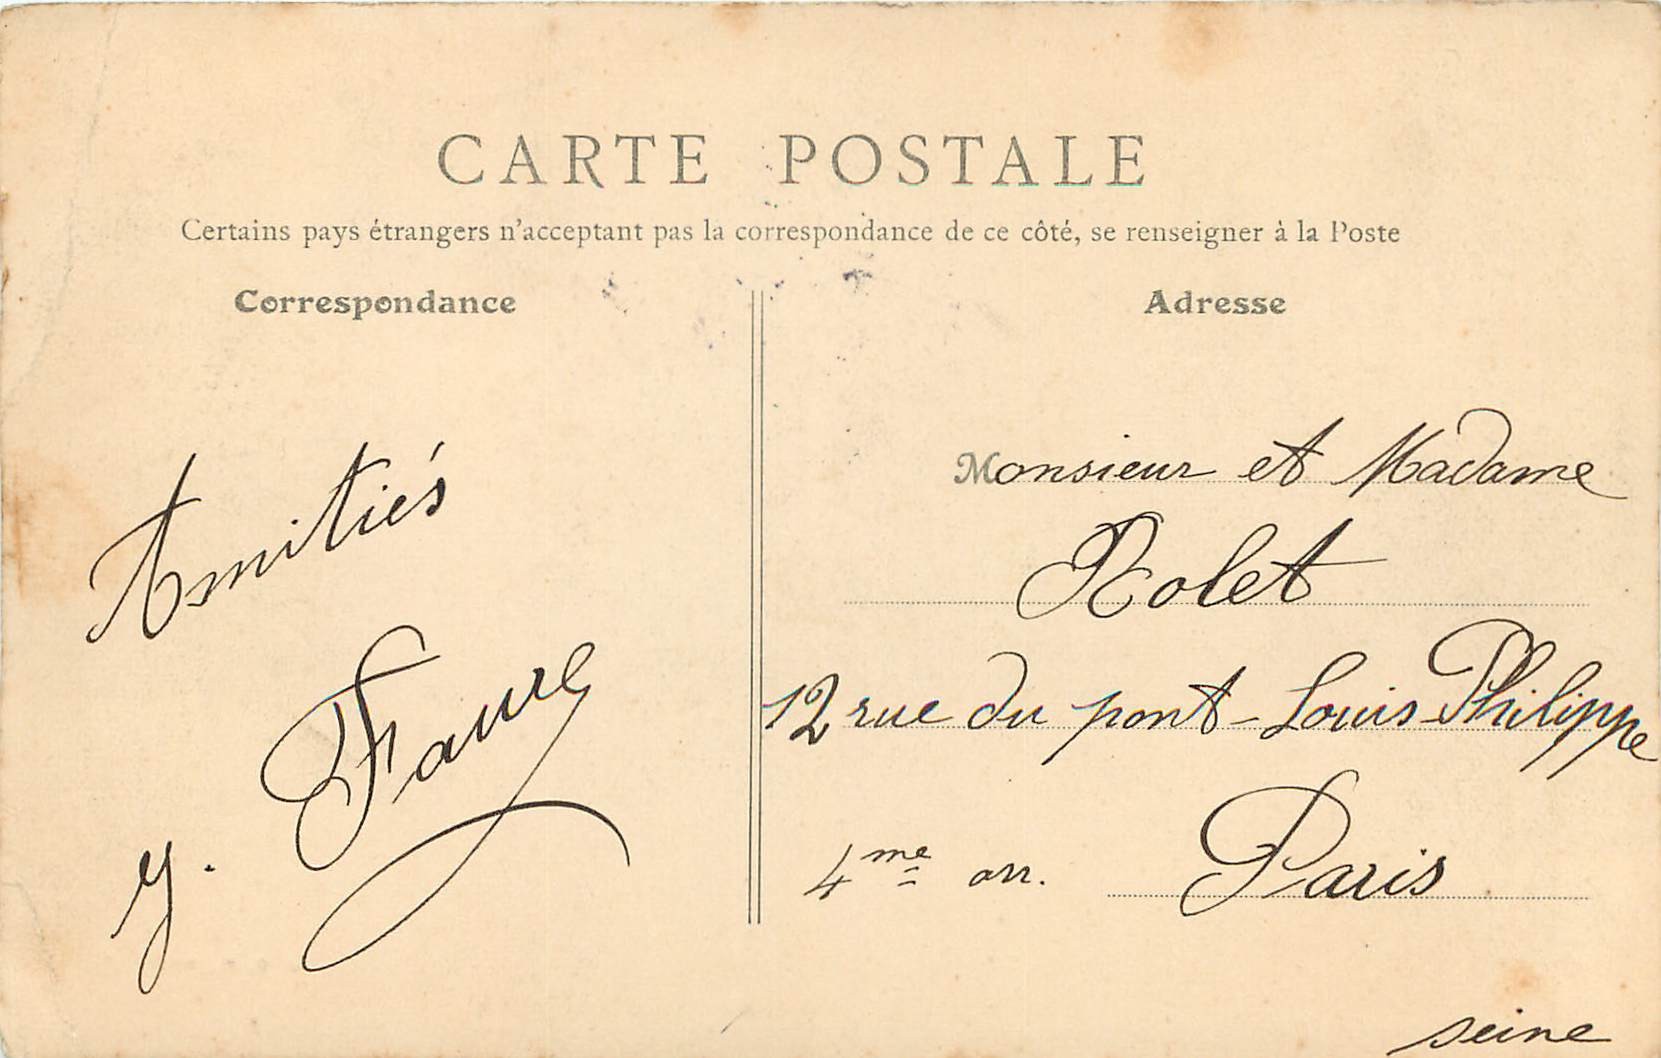 CARTE POSTALE
Certains pays étrangers n'acceptant pas la correspondance de ce côté, se renseigner à la Poste
Correspondance
Adresse
Amitiés
y. Faure
Monsieur et Madame
Rolet
12 rue du pont-Louis-Philippe
4me arr. Paris
seine